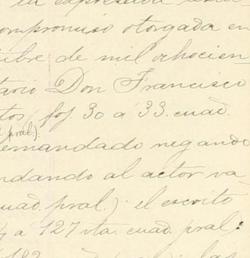 en expresión
compromiso otorgada en
bre de mil ochocien
tario Don Francisco
tos, foj 30 a 33 cuad.
pral).
emandado negando
ndando al actor va
cuad. pral): el escrito
a 127 vta. cuad. pral: